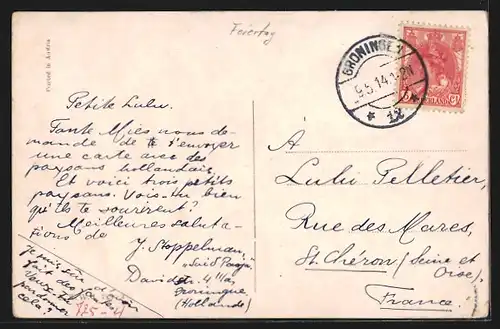 Feiertag
Printed in Austria
GRONINGEN
5.5.14
12
Petite Lulu.
Tante Mies nous de-
mande de te t'envoyer
une carte avec des
paysans hollandais.
Et voici trois petits
paysans. Vois-tu bien
qu'ils te sourirent?
Meilleures saluta-
tions de
J. Stoppelman,
Davidstr. 4 IIa,
Groningue
(Hollande)
Je suis sûr
cela?
À
Lulu Pelletier,
Rue des Mares,
St. Chéron (Seine et
Oise).
France.